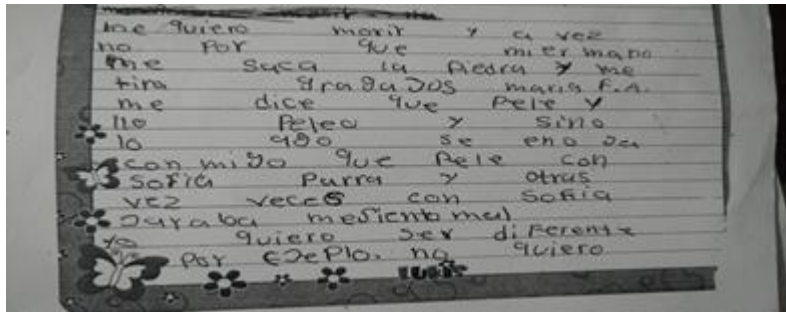 me quiero morir y a vez
no por que mi er mano
me saca la piedra y me
tira maria F.A.
me dice que pele y
llo peleo y sino
lo ago se eno ja
con migo que pele con
Sofia Parra y otras
vez veces con Sofia
me siento mal
yo quiero ser diferente
por ejeplo. no quiero